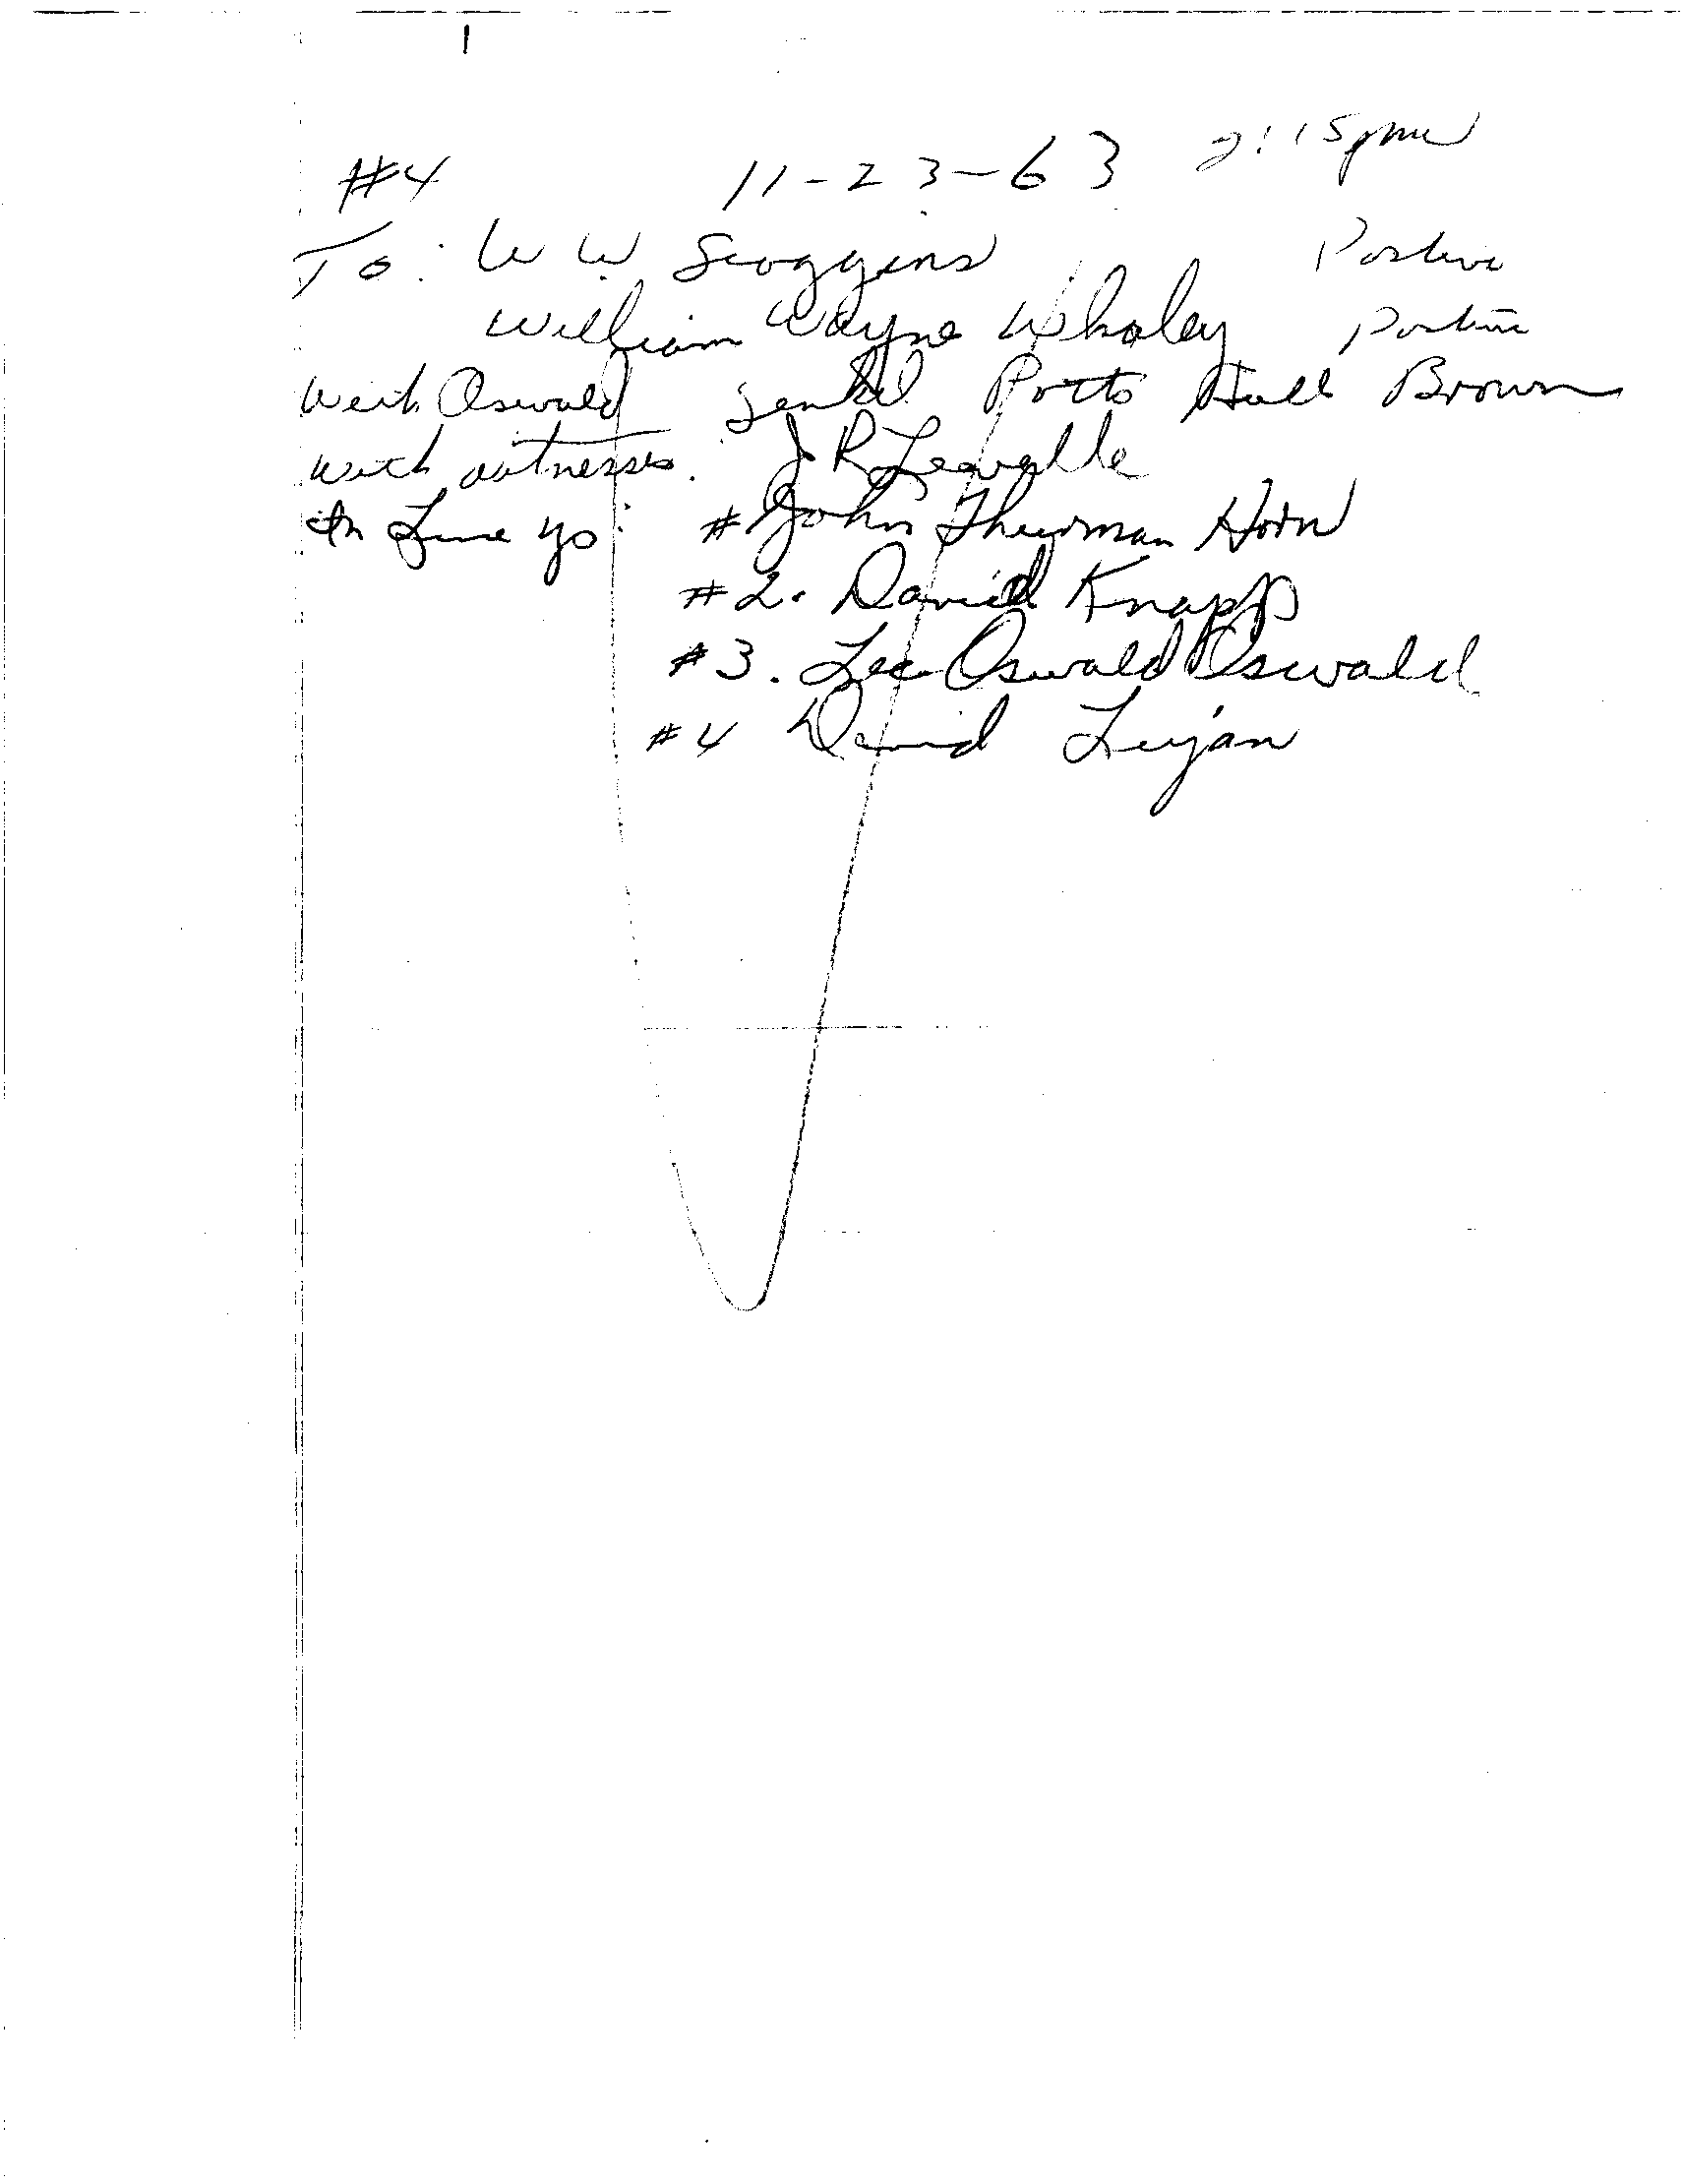 #4 11-23-63 2:15pm
To: W W Scoggins Postive
William Wayne Whaley Postive
With Oswald Senkel Potts Hall Brown
with witnesses. J R Leavelle
In Line up: # John Thurman Horn
#2. David Knapp
#3. Lee Oswald Oswald
#4 David Lujan